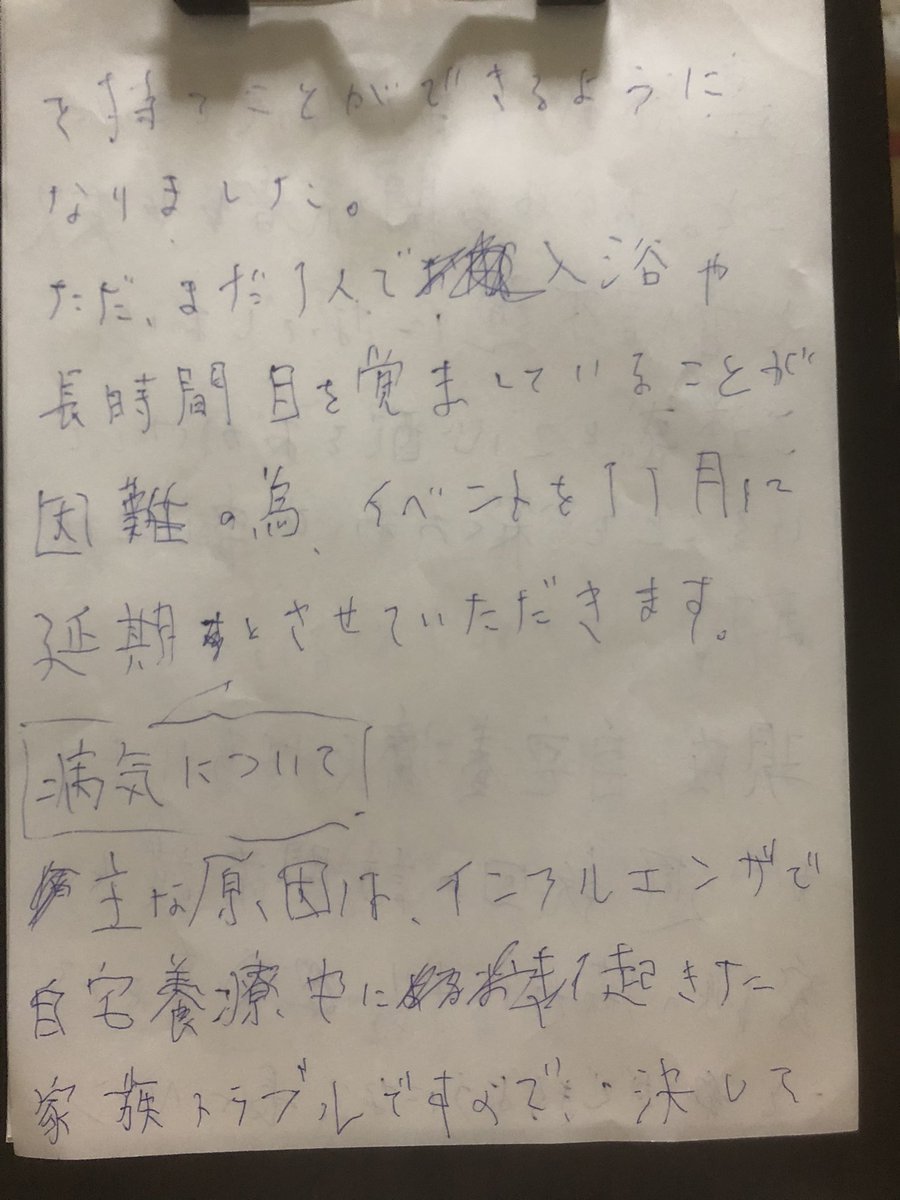 を持つことができるように
なりました。
ただ、まだ1人で入浴や
長時間目を覚ましていることが
困難の為、イベントを11月に
延期とさせていただきます。
病気について
主な原因は、インフルエンザで
自宅養療中に起きた
家族トラブルですので、決して